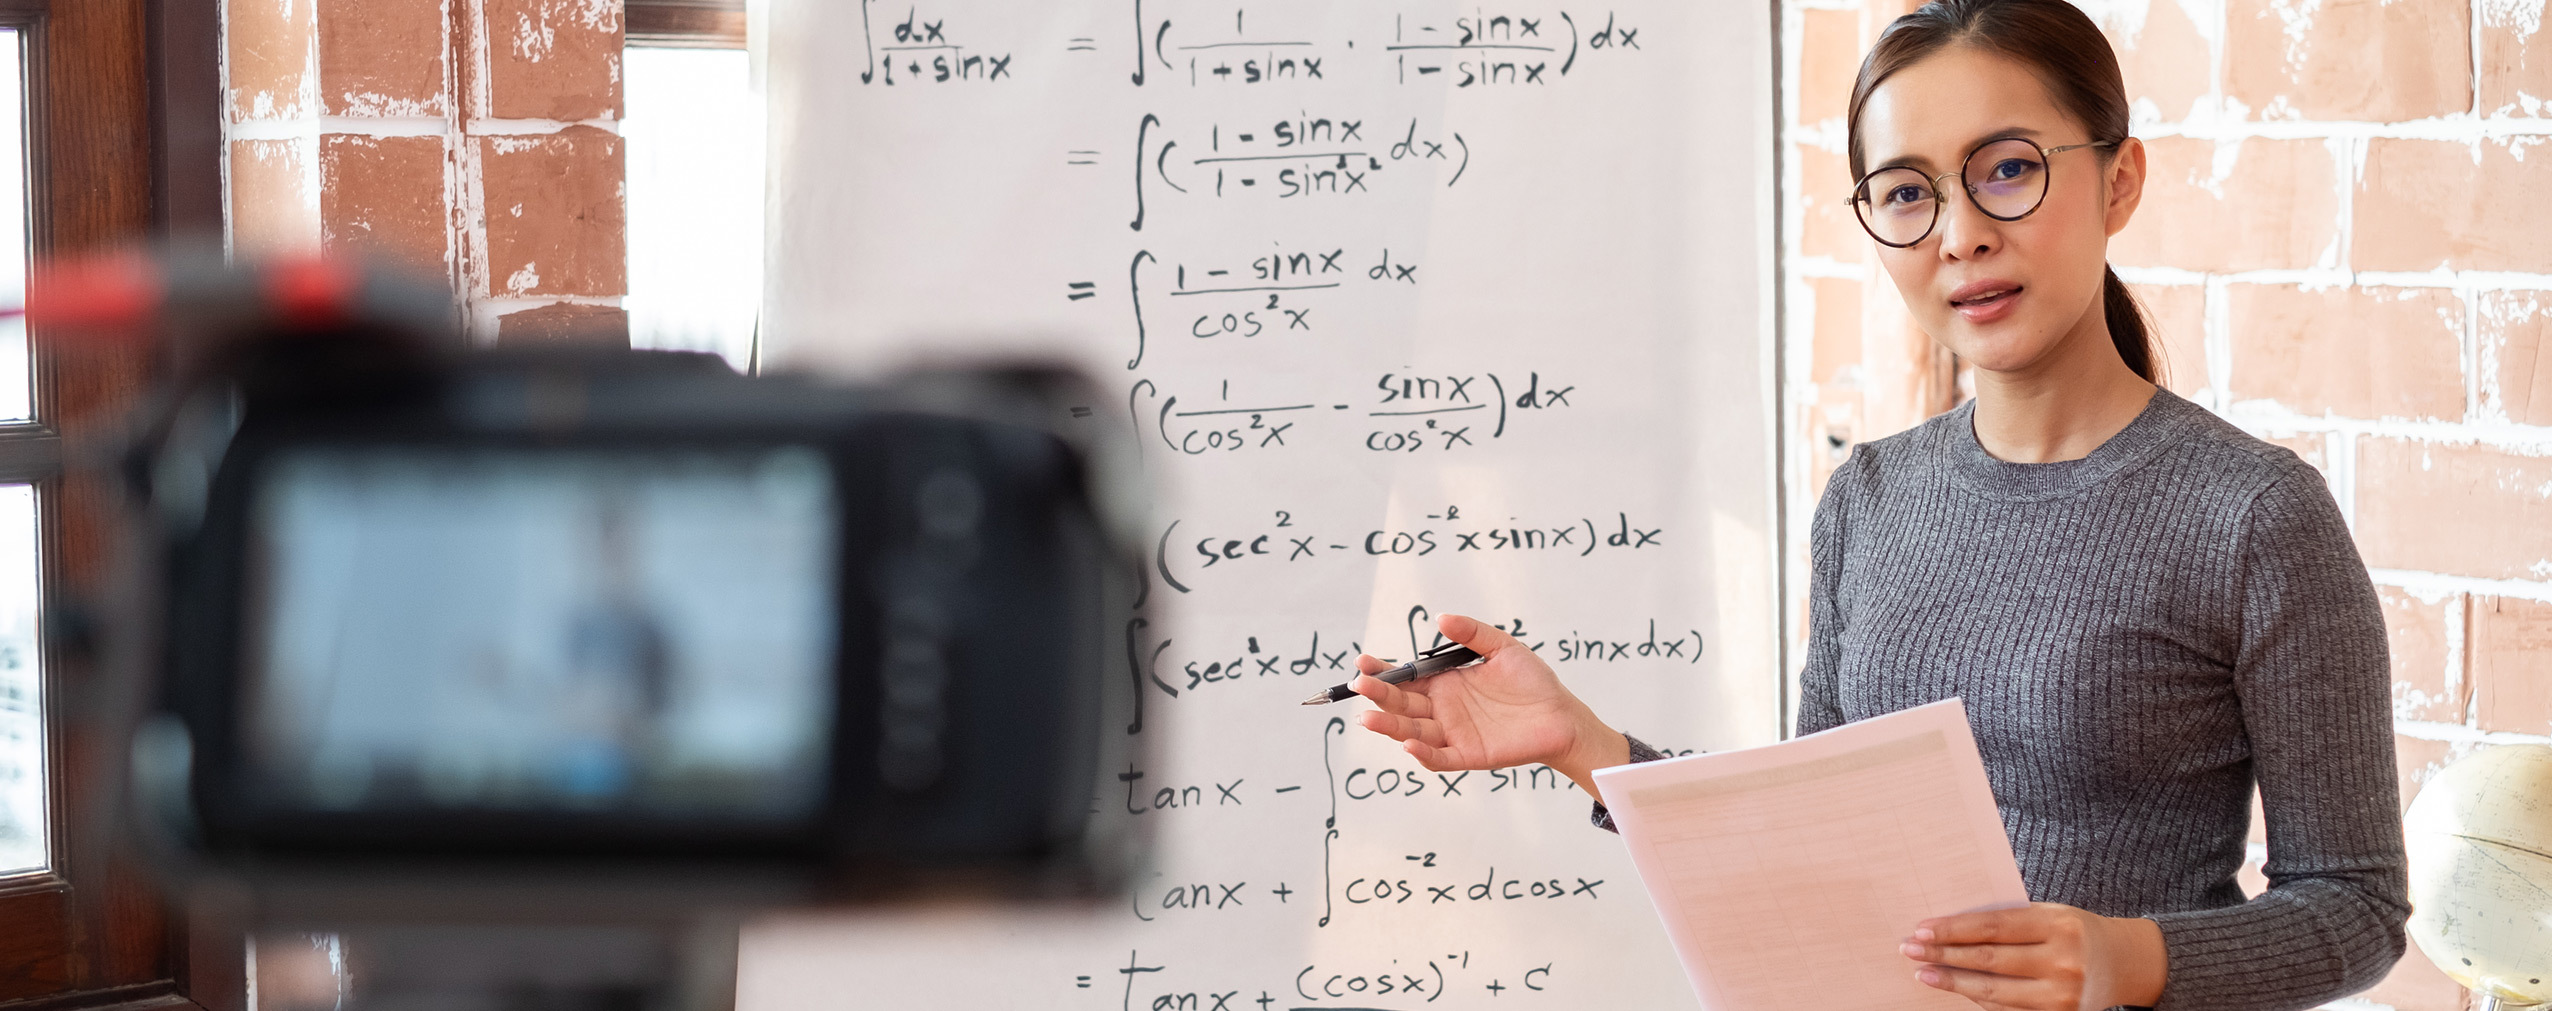 ∫ dx/(1 + sinx) = ∫( 1/(1 + sinx) · (1 - sinx)/(1 - sinx) ) dx
= ∫( (1 - sinx)/(1 - sin²x²) dx)
= ∫ (1 - sinx)/(cos²x) dx
= ∫( 1/(cos²x) - sinx/(cos²x) ) dx
∫( sec²x - cos⁻²x sinx) dx
∫(sec²x dx) - ∫( ⁻² sinx dx)
= tanx - ∫cosx sin
tanx + ∫cos⁻²x dcosx
= tanx + (cosx)⁻¹ + c